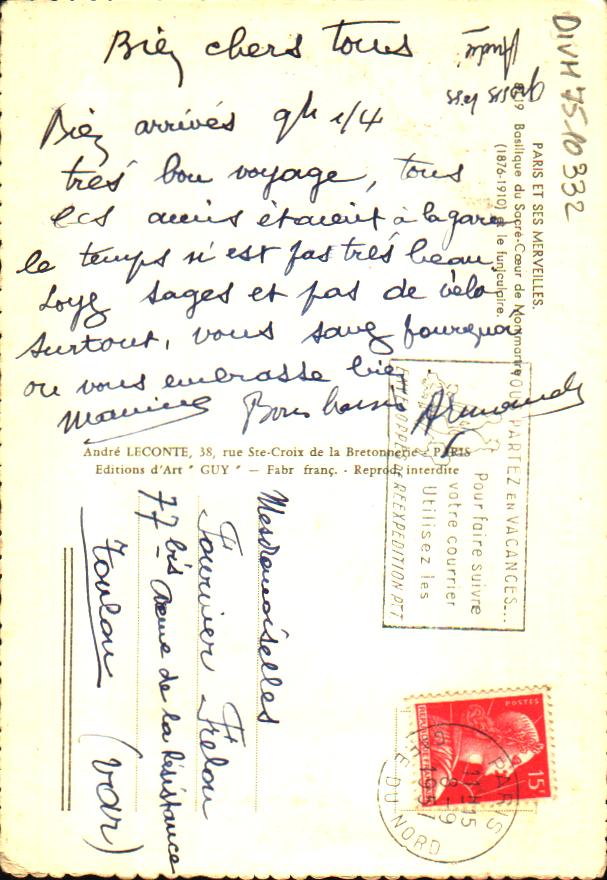 Bien chers tous
Bien arrivés 9h 1/4
très bon voyage, tous
les amis étaient à la gare
le temps n'est pas très beau,
soyez sages et pas de vélo
surtout, vous savez pourquoi
on vous embrasse bien
Maurice Bons baisers Armande
gross ises
André
DIVH 75.10 332
PARIS ET SES MERVEILLES.
Basilique du Sacré-Cœur de Montmartre
(1876-1910) et le funiculaire.
André LECONTE, 38, rue Ste-Croix de la Bretonnerie - PARIS
Editions d'Art " GUY " — Fabr franç. - Reprod. interdite
VOUS PARTEZ EN VACANCES...
Pour faire suivre
votre courrier
Utilisez les
ENVELOPPES DE REEXPEDITION PTT
Mesdemoiselles
Fournier Frelon
77 bis Avenue de la Résistance
Toulon (Var)
POSTES
15F
PARIS
11H15
8-9
1957
GARE DU NORD